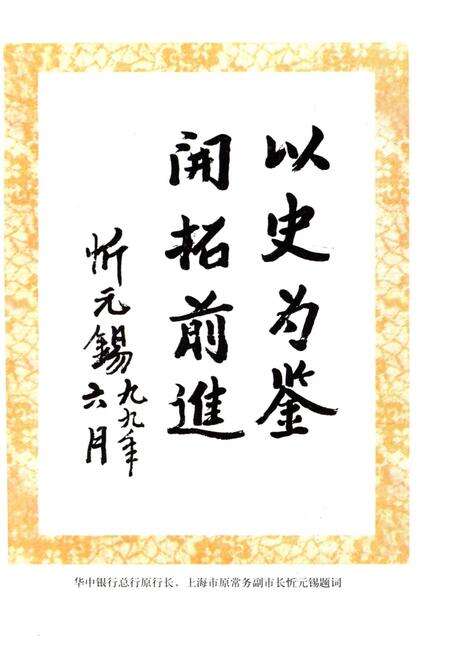 以史为鉴
開拓前進
忻元錫
九九年
六月
华中银行总行原行长、上海市原常务副市长忻元锡题词